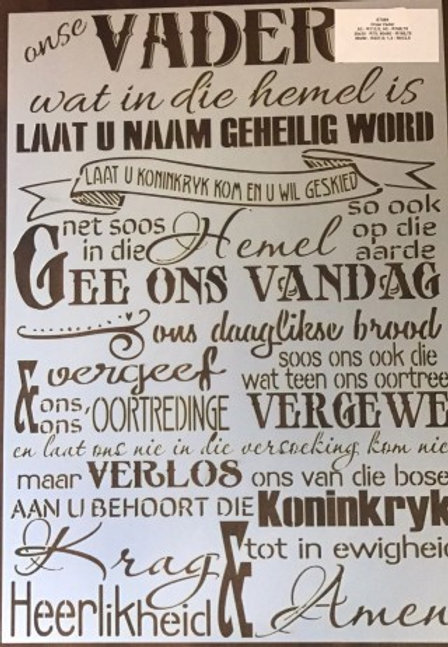 onse VADER
wat in die hemel is
LAAT U NAAM GEHEILIG WORD
LAAT U KONINKRYK KOM EN U WIL GESKIED
net soos in die Hemel so ook op die aarde
GEE ONS VANDAG
ons daaglikse brood
& vergeef ons, ons OORTREDINGE
soos ons ook die
wat teen ons oortree
VERGEWE
en laat ons nie in die versoeking kom nie
maar VERLOS ons van die bose
AAN U BEHOORT DIE Koninkryk
Krag & Heerlikheid
tot in ewigheid
Amen